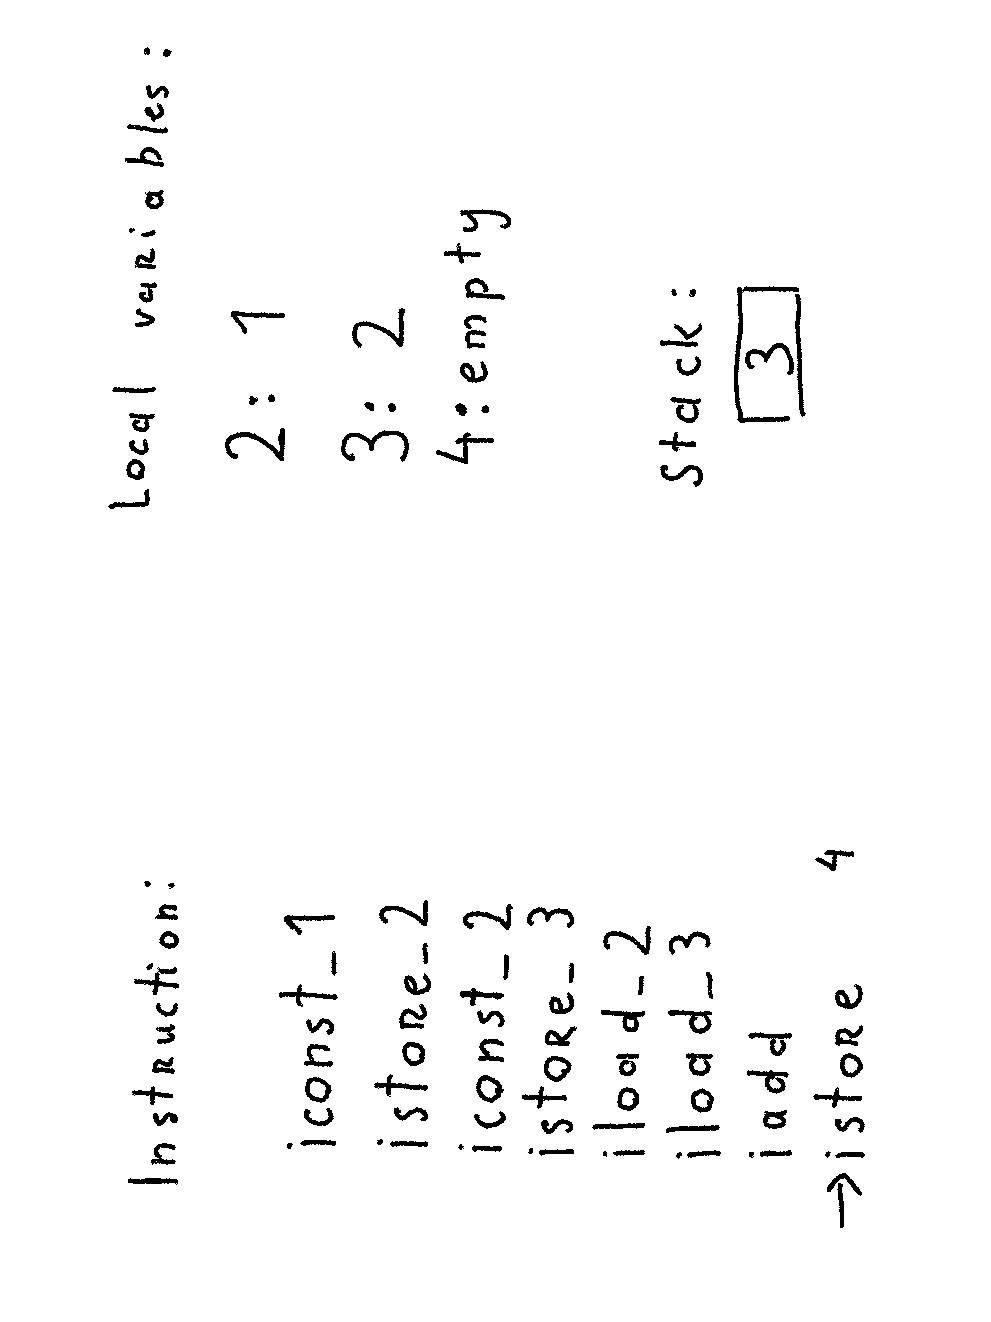 Instruction:
iconst_1
istore_2
iconst_2
istore_3
iload_2
iload_3
iadd
→istore 4
Local variables:
2: 1
3: 2
4: empty
Stack:
3